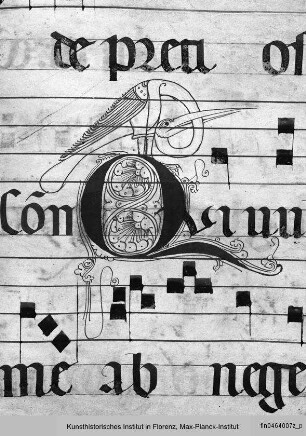 de preu of
Cōm Q uium
me ab nege
Kunsthistorisches Institut in Florenz, Max-Planck-Institut
fln0464007z_p